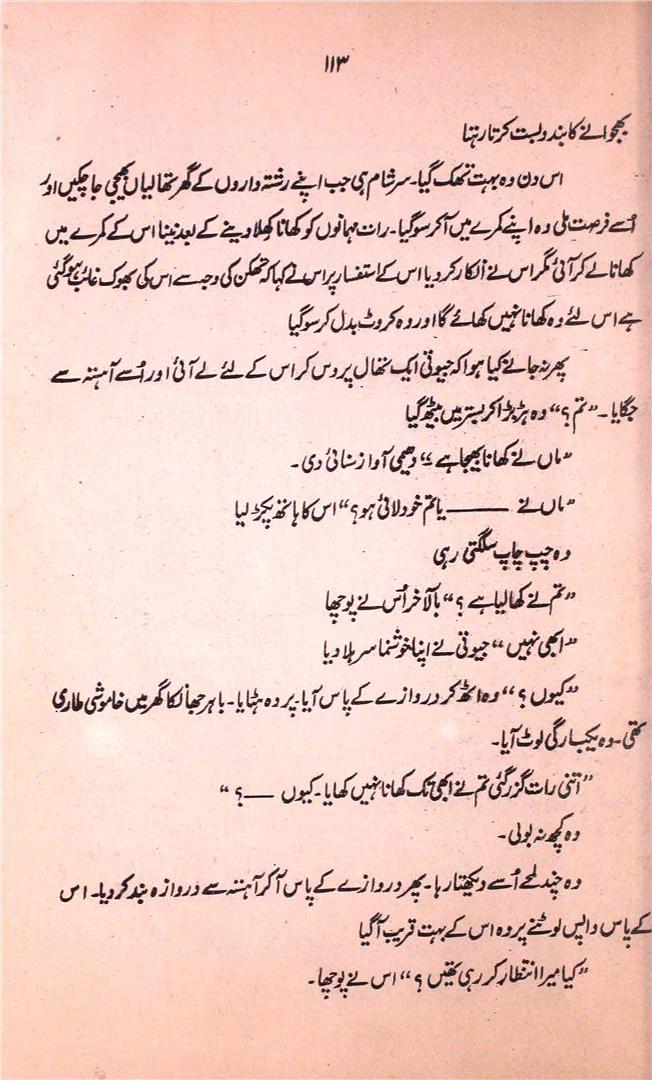 ۱۱۳
بھجوانے کا بندوبست کرتا رہتا
اس دن وہ بہت تھک گیا۔ سرِ شام ہی جب اپنے رشتہ داروں کے گھر تھالیاں بھیجی جا چکیں اور
اُسے فرصت ملی وہ اپنے کمرے میں آکر سو گیا۔ رات مہمانوں کو کھانا کھلا دینے کے بعد نینا اس کے کمرے میں
کھانا لے کر آئی مگر اس نے انکار کر دیا اس کے استفسار پر اس نے کہا کہ تھکن کی وجہ سے اس کی بھوک غائب ہو گئی
ہے اس لئے وہ کھانا نہیں کھائے گا اور وہ کروٹ بدل کر سو گیا
پھر نہ جانے کیا ہوا کہ جیوتی ایک تھال پروس کر اس کے لئے لے آئی اور اُسے آہستہ سے
جگایا۔ "تم؟" وہ ہڑبڑا کر بستر میں بیٹھ گیا
"ماں نے کھانا بھیجا ہے" دھیمی آواز سنائی دی۔
"ماں نے —— یا تم خود لائی ہو؟" اس کا ہاتھ پکڑ لیا
وہ چپ چاپ سلگتی رہی
"تم نے کھا لیا ہے؟" بالآخر اُس نے پوچھا
"ابھی نہیں" جیوتی نے اپنا خوشنما سر ہلا دیا
"کیوں؟" وہ اٹھ کر دروازے کے پاس آیا۔ پردہ ہٹایا۔ باہر جھانکا گھر میں خاموشی طاری
تھی۔ وہ یکبارگی لوٹ آیا۔
"اتنی رات گزر گئی تم نے ابھی تک کھانا نہیں کھایا۔ کیوں —؟"
وہ کچھ نہ بولی۔
وہ چند لمحے اُسے دیکھتا رہا۔ پھر دروازے کے پاس آکر آہستہ سے دروازہ بند کر دیا۔ اس
کے پاس واپس لوٹنے پر وہ اس کے بہت قریب آ گیا
"کیا میرا انتظار کر رہی تھیں؟" اس نے پوچھا۔